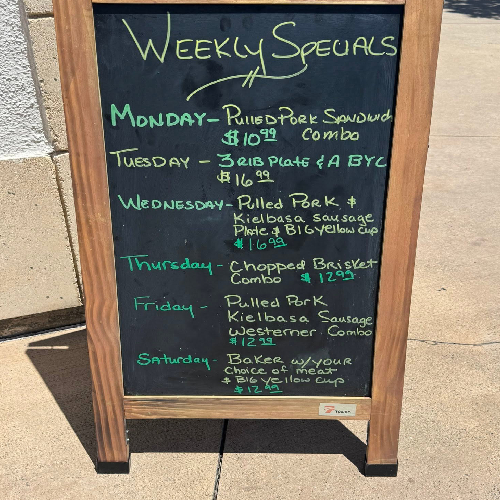 Weekly Specials
Monday - Pulled Pork Sandwich
$10.99 Combo
Tuesday - 3 Rib Plate & A BYC
$16.99
Wednesday - Pulled Pork &
Kielbasa Sausage
Plate & Big Yellow Cup
$16.99
Thursday - Chopped Brisket
Combo $12.99
Friday - Pulled Pork
Kielbasa Sausage
Westerner Combo
$12.99
Saturday - Baker w/your
Choice of meat
& Big Yellow Cup
$12.99